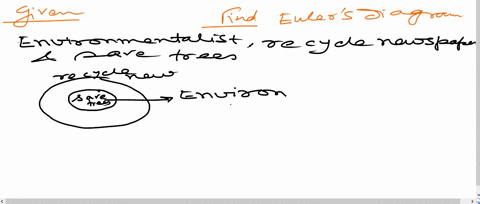 Given Find Euler's Diagram
Environmentalist, recycle newspaper
& save trees
recycle new
save trees Environ